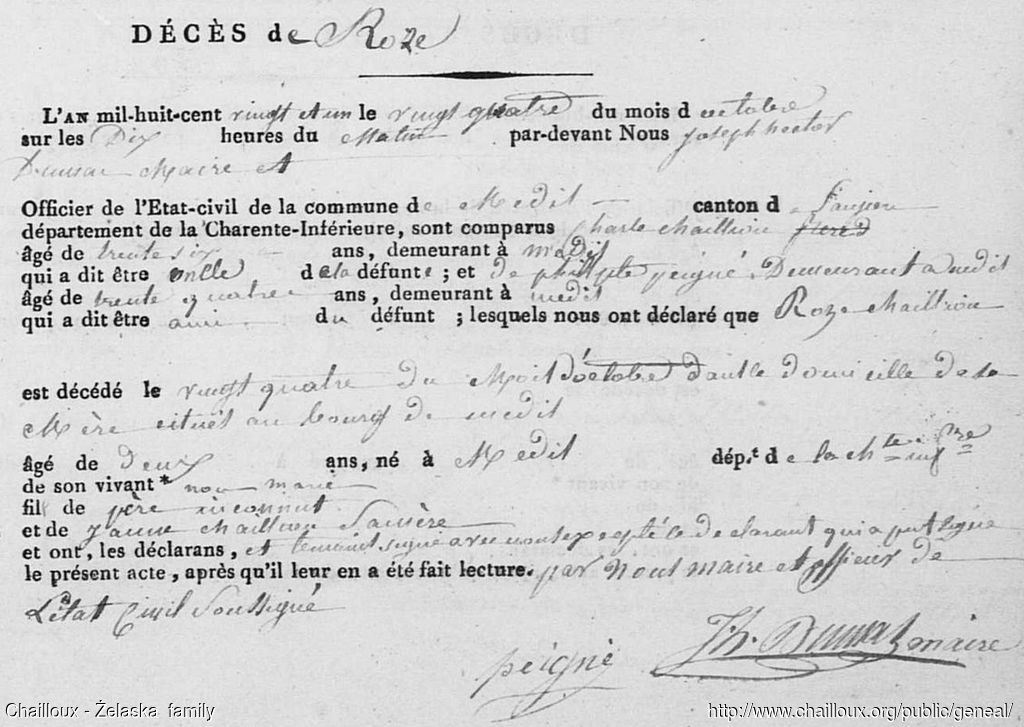 DÉCÈS de Roze
L'AN mil-huit-cent vingt et un le vingt quatre du mois d octobre
sur les Dix heures du Matin par-devant Nous joseph hector
Maire et
Officier de l'Etat-civil de la commune de Medis canton d Saujeon
département de la Charente-Inférieure, sont comparus Charle chaillou
âgé de trente six ans, demeurant à medis
qui a dit être oncle de la défunte; et de philipe peigné Demeurant a medis
âgé de trente quatre ans, demeurant à medis
qui a dit être ami du défunt ; lesquels nous ont déclaré que Roze chaillou
est décédé le vingt quatre du Mois d'octobre dans le domicille de sa
Mère situés au bourg de medis
âgé de Deux ans, né à Medis dép.t de la ch.te inf.re
de son vivant * non marié
fil de père inconnut
et de chaillou Sa mère
et ont, les déclarans, et temoins signé avec nous excepté le declarant qui a put signé
le présent acte, après qu'il leur en a été fait lecture. par nous maire et officier de
L'état Civil Soussigné
peigné maire
Chailloux - Żelaska family http://www.chailloux.org/public/geneal/